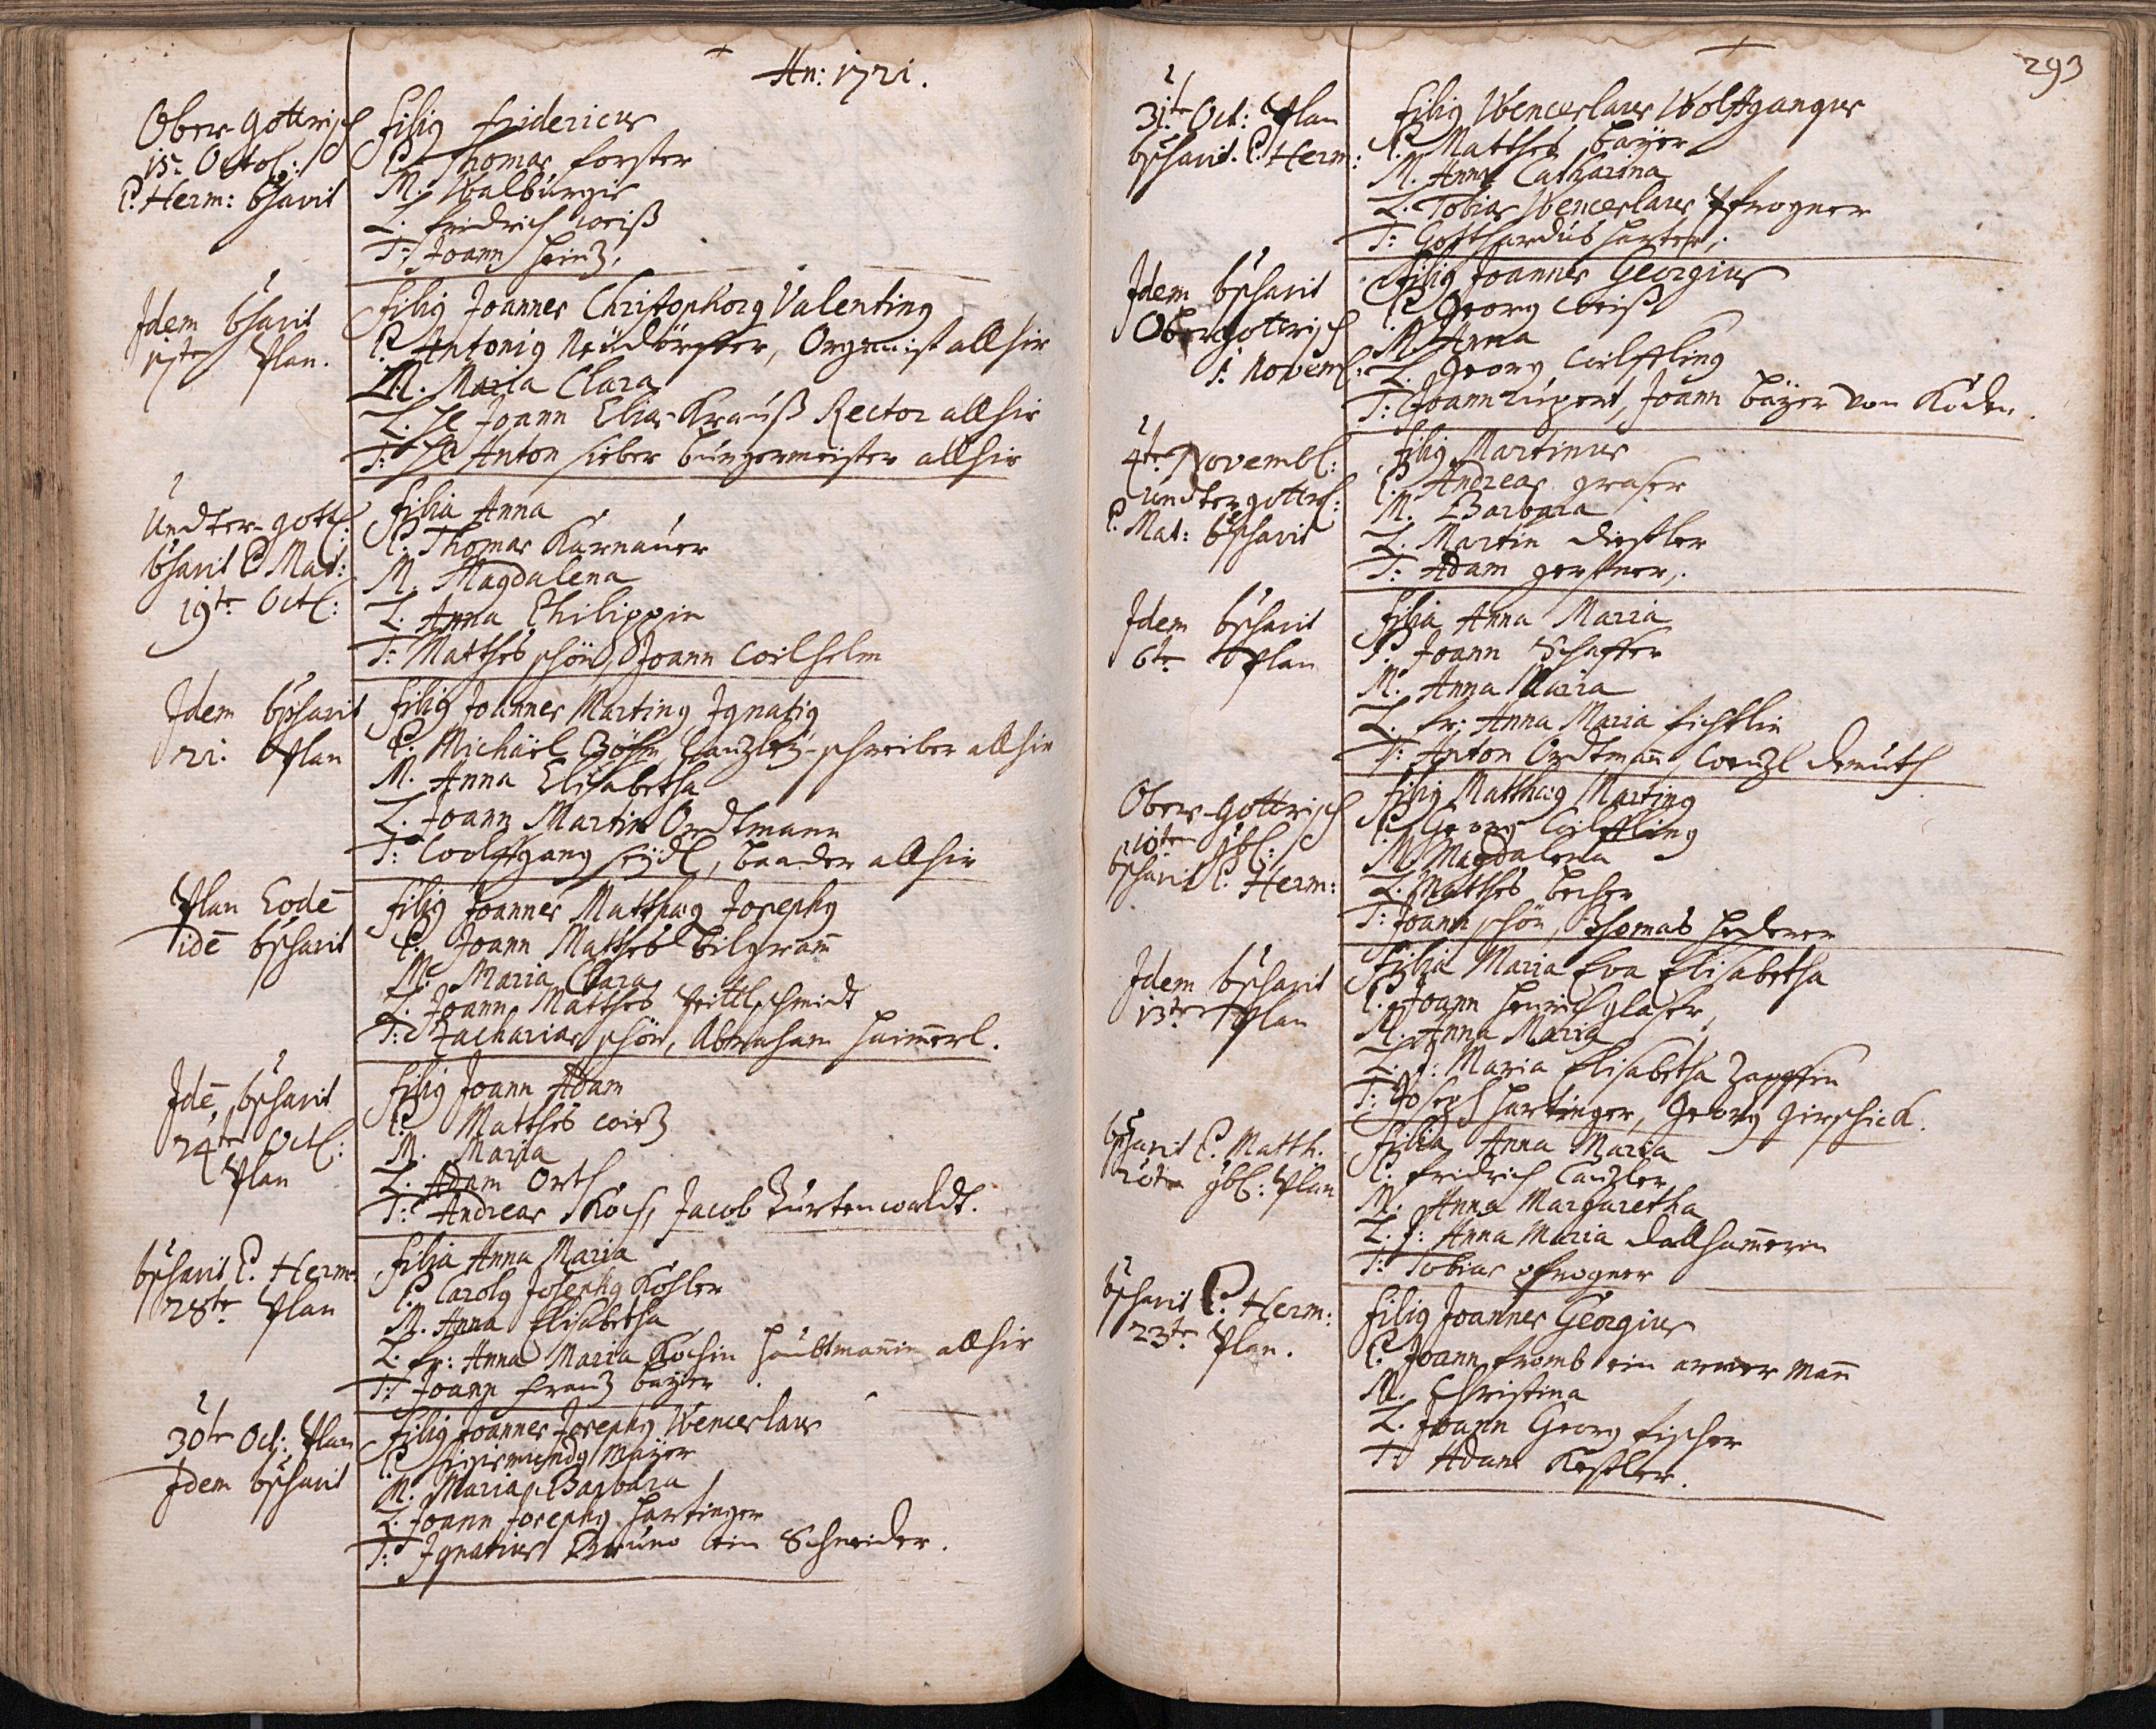 An: 1721.
Ober-Gottrisch
15. Octob:
P. Herm: bsavit
Filig Fridericus
P. Thomas Forster
M. Walburgis
L. Fridrich Weiß
T: Joann Heintz.
Idem bsavit
Plan.
Filig Joannes Christophorg Valenting
P. Antonig Neudörffer, Organist allhir
M. Maria Clara
L. H Joann Elias Krauß Rector allhir
T: H Anton Sieber burgermeister allhir
Undter-gott:
bsavit P Mat:
19te Oct:
Filia Anna
P. Thomas Karnauer
M. Magdalena
L. Anna Philippin
T: Matthes schön, Joann Wilhelm
Idem bpsavit
21. Plan
Filig Joannes Marting Ignatig
P. Michäel Böhm Canzley-schreiber allhir
M. Anna Elisabetha
L. Joann Martin Ordtmann
T: Wolffgang Seydl, baader allhir
Plan Eodē
idē bpsavit
Filig Joannes Matthæg Josephg
P. Joann Matthes bilgram̄
M. Maria Clara
L. Joann Matthes Zeittlschmidt
T: Zacharias schön, Abraham Haim̄erl.
Idē bpsavit
24te Oct:
Plan
Filig Joann Adam
P. Matthes Wirtz
M. Maria
L. Adam Orth
T: Andreas Koch, Jacob Türtenwaldt.
bpsavit P. Herm:
28te Plan
Filia Anna Maria
P. Carolg Josephg Kohler
M. Anna Elisabetha
L. Fr: Anna Maria Kochin Haubtman̄in allhir
T: Joann Frantz bayer
30te Oct: Plan
Idem bpsavit
Filig Joannes Josephg Wenceslaus
P. Sigismundg Mayer
M. Maria Barbara
L. Joann Josephg Hartinger
T: Ignatius Bruno ein Schneider.
293
31te Oct: Plan
bpsavit. P. Herm:
Filig Wenceslaus Wolffgangus
P. Matthes bayer
M. Anna Catharina
L. Tobias Wenceslaus Pfrogner
T: Gotthardus Harter.
Idem bpsavit
Obergottrisch
1. Novem:
Filig Joannes Georgius
P. Georg Weiß
M. Anna
L. Georg Wilffling
T: Joann Lupert, Joann bayer von Koden.
4te Novemb:
Undtergottr:
P. Mat: bpsavit
Filig Martinus
P. Andreas graser
M. Barbara
L. Martin distler
T: Adam gerstner.
Idem bpsavit
6te Plan
Filia Anna Maria
P. Joann Schaffer
M. Anna Maria
L. Fr: Anna Maria Fichtlin
T: Anton Ordtman̄, Wenzl Demuth
Ober-gottrisch
10te 9b:
bpsavit P. Herm:
Filig Matthæg Marting
P. Georg Wilffling
M. Magdalena
L. Matthes becher
T: Joann schön, Thomas Hederer
Idem bpsavit
13te Plan
Filia Maria Eva Elisabetha
P. Joann Henrich glaser
M. Anna Maria
L. J: Maria Elisabetha Zapffin
T: Joseph Hartinger, Georg Girschick.
bpsavit P. Matth.
20te 9b: Plan
Filia Anna Maria
P. Fridrich Canzler
M. Anna Margaretha
L. J: Anna Maria dallham̄erin
T: Tobias pfrogner
bpsavit P. Herm:
23te Plan.
Filig Joannes Georgius
P. Joann Fromb ein armer Man̄
M. Christina
L. Joann Georg Fischer
T: Adam Kestler.